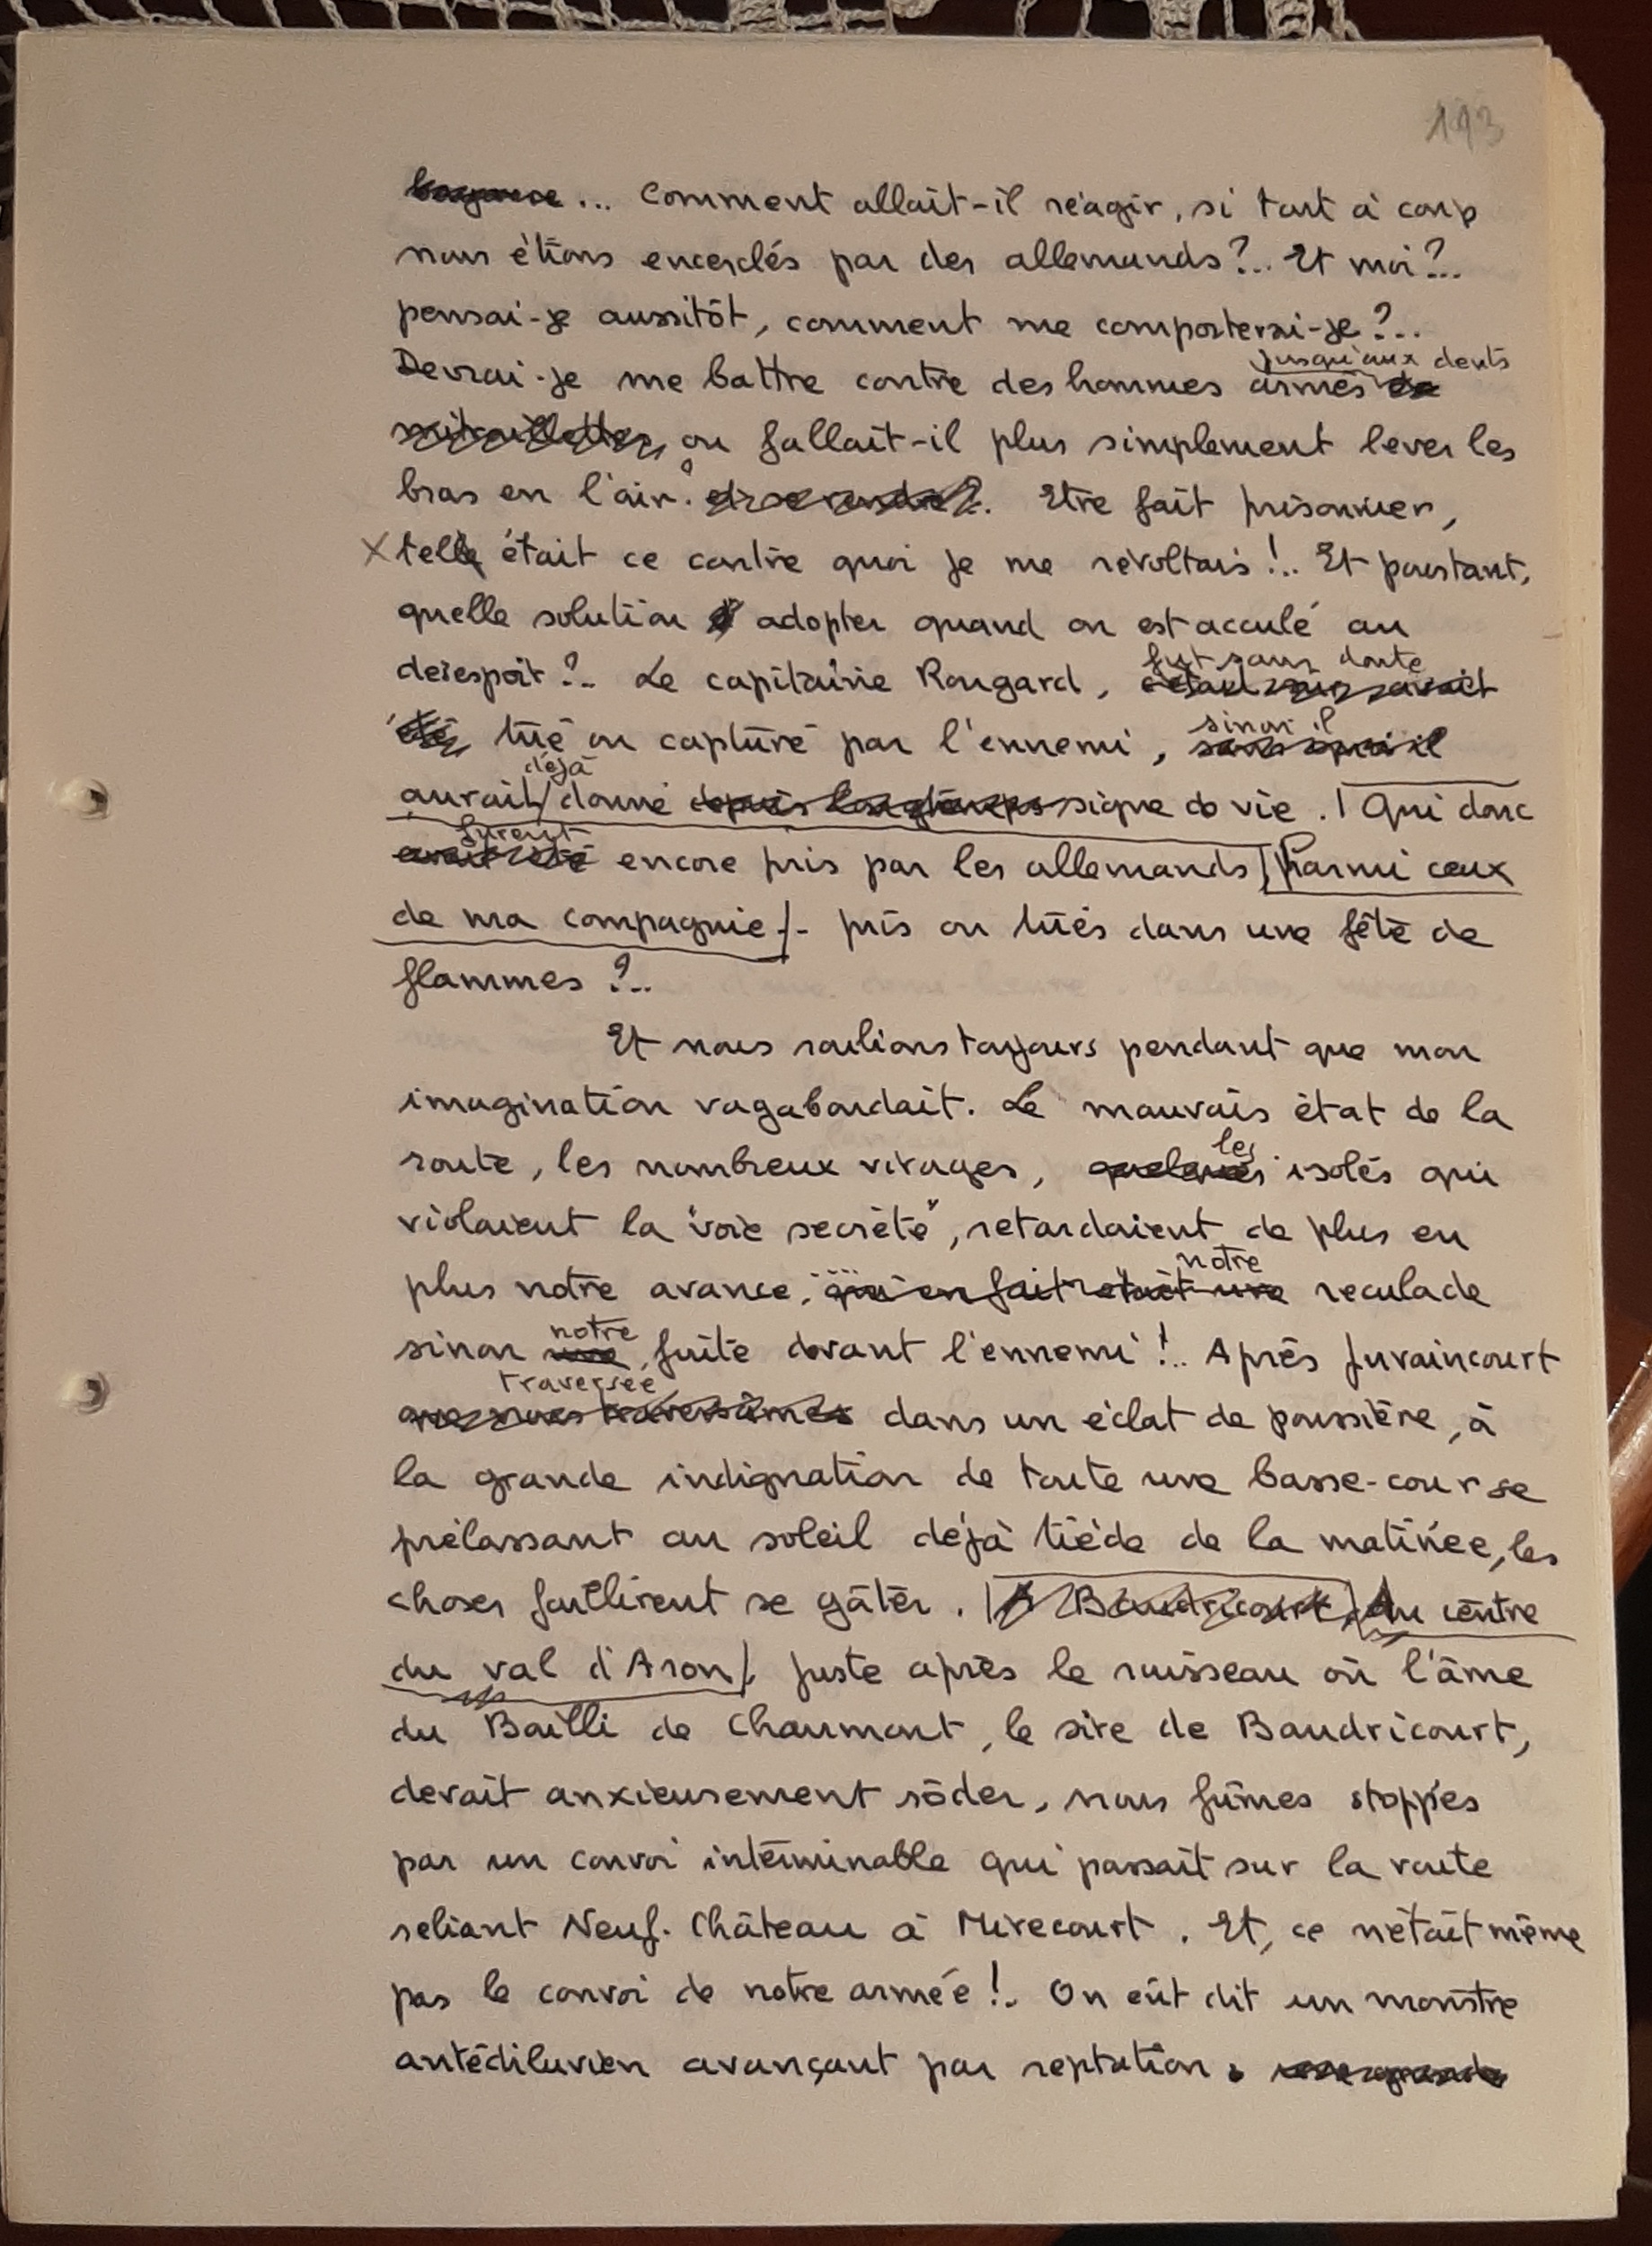 193
... Comment allait-il réagir, si tout à coup
nous étions encerclés par des allemands?.. Et moi?..
pensai-je aussitôt, comment me comporterai-je?..
jusqu'aux dents
Devrai-je me battre contre des hommes armés de
mitraillettes, ou fallait-il plus simplement lever les
bras en l'air? et se rendre?. Etre fait prisonnier,
X telle était ce contre quoi je me révoltais!.. Et pourtant,
quelle solution adopter quand on est acculé au
désespoir?.. Le capitaine Rougard,
fut sans doute
été, tué ou capturé par l'ennemi, sans quoi il
sinon il
déjà
aurait donné depuis longtemps signe de vie. Qui donc
furent
avait été encore pris par les allemands, Parmi ceux
de ma compagnie - pris ou tués dans une fête de
flammes?..
Et nous roulions toujours pendant que mon
imagination vagabondait. Le mauvais état de la
les
route, les nombreux virages, quelques isolés qui
violaient la "voie secrète", retardaient de plus en
notre
plus notre avance, qui en fait était une reculade
notre
sinon une fuite devant l'ennemi!.. Après Juvaincourt
traversée
que nous traversâmes dans un éclat de poussière, à
la grande indignation de toute une basse-cour se
prélassant au soleil déjà tiède de la matinée, les
choses faillirent se gâter. A Baudricourt, Au centre
du val d'Aron, juste après le ruisseau où l'âme
du Bailli de Chaumont, le sire de Baudricourt,
devait anxieusement rôder, nous fûmes stoppés
par un convoi interminable qui passait sur la route
reliant Neuf-Château à Mirecourt. Et, ce n'était même
pas le convoi de notre armée!.. On eût dit un monstre
antédiluvien avançant par reptation.